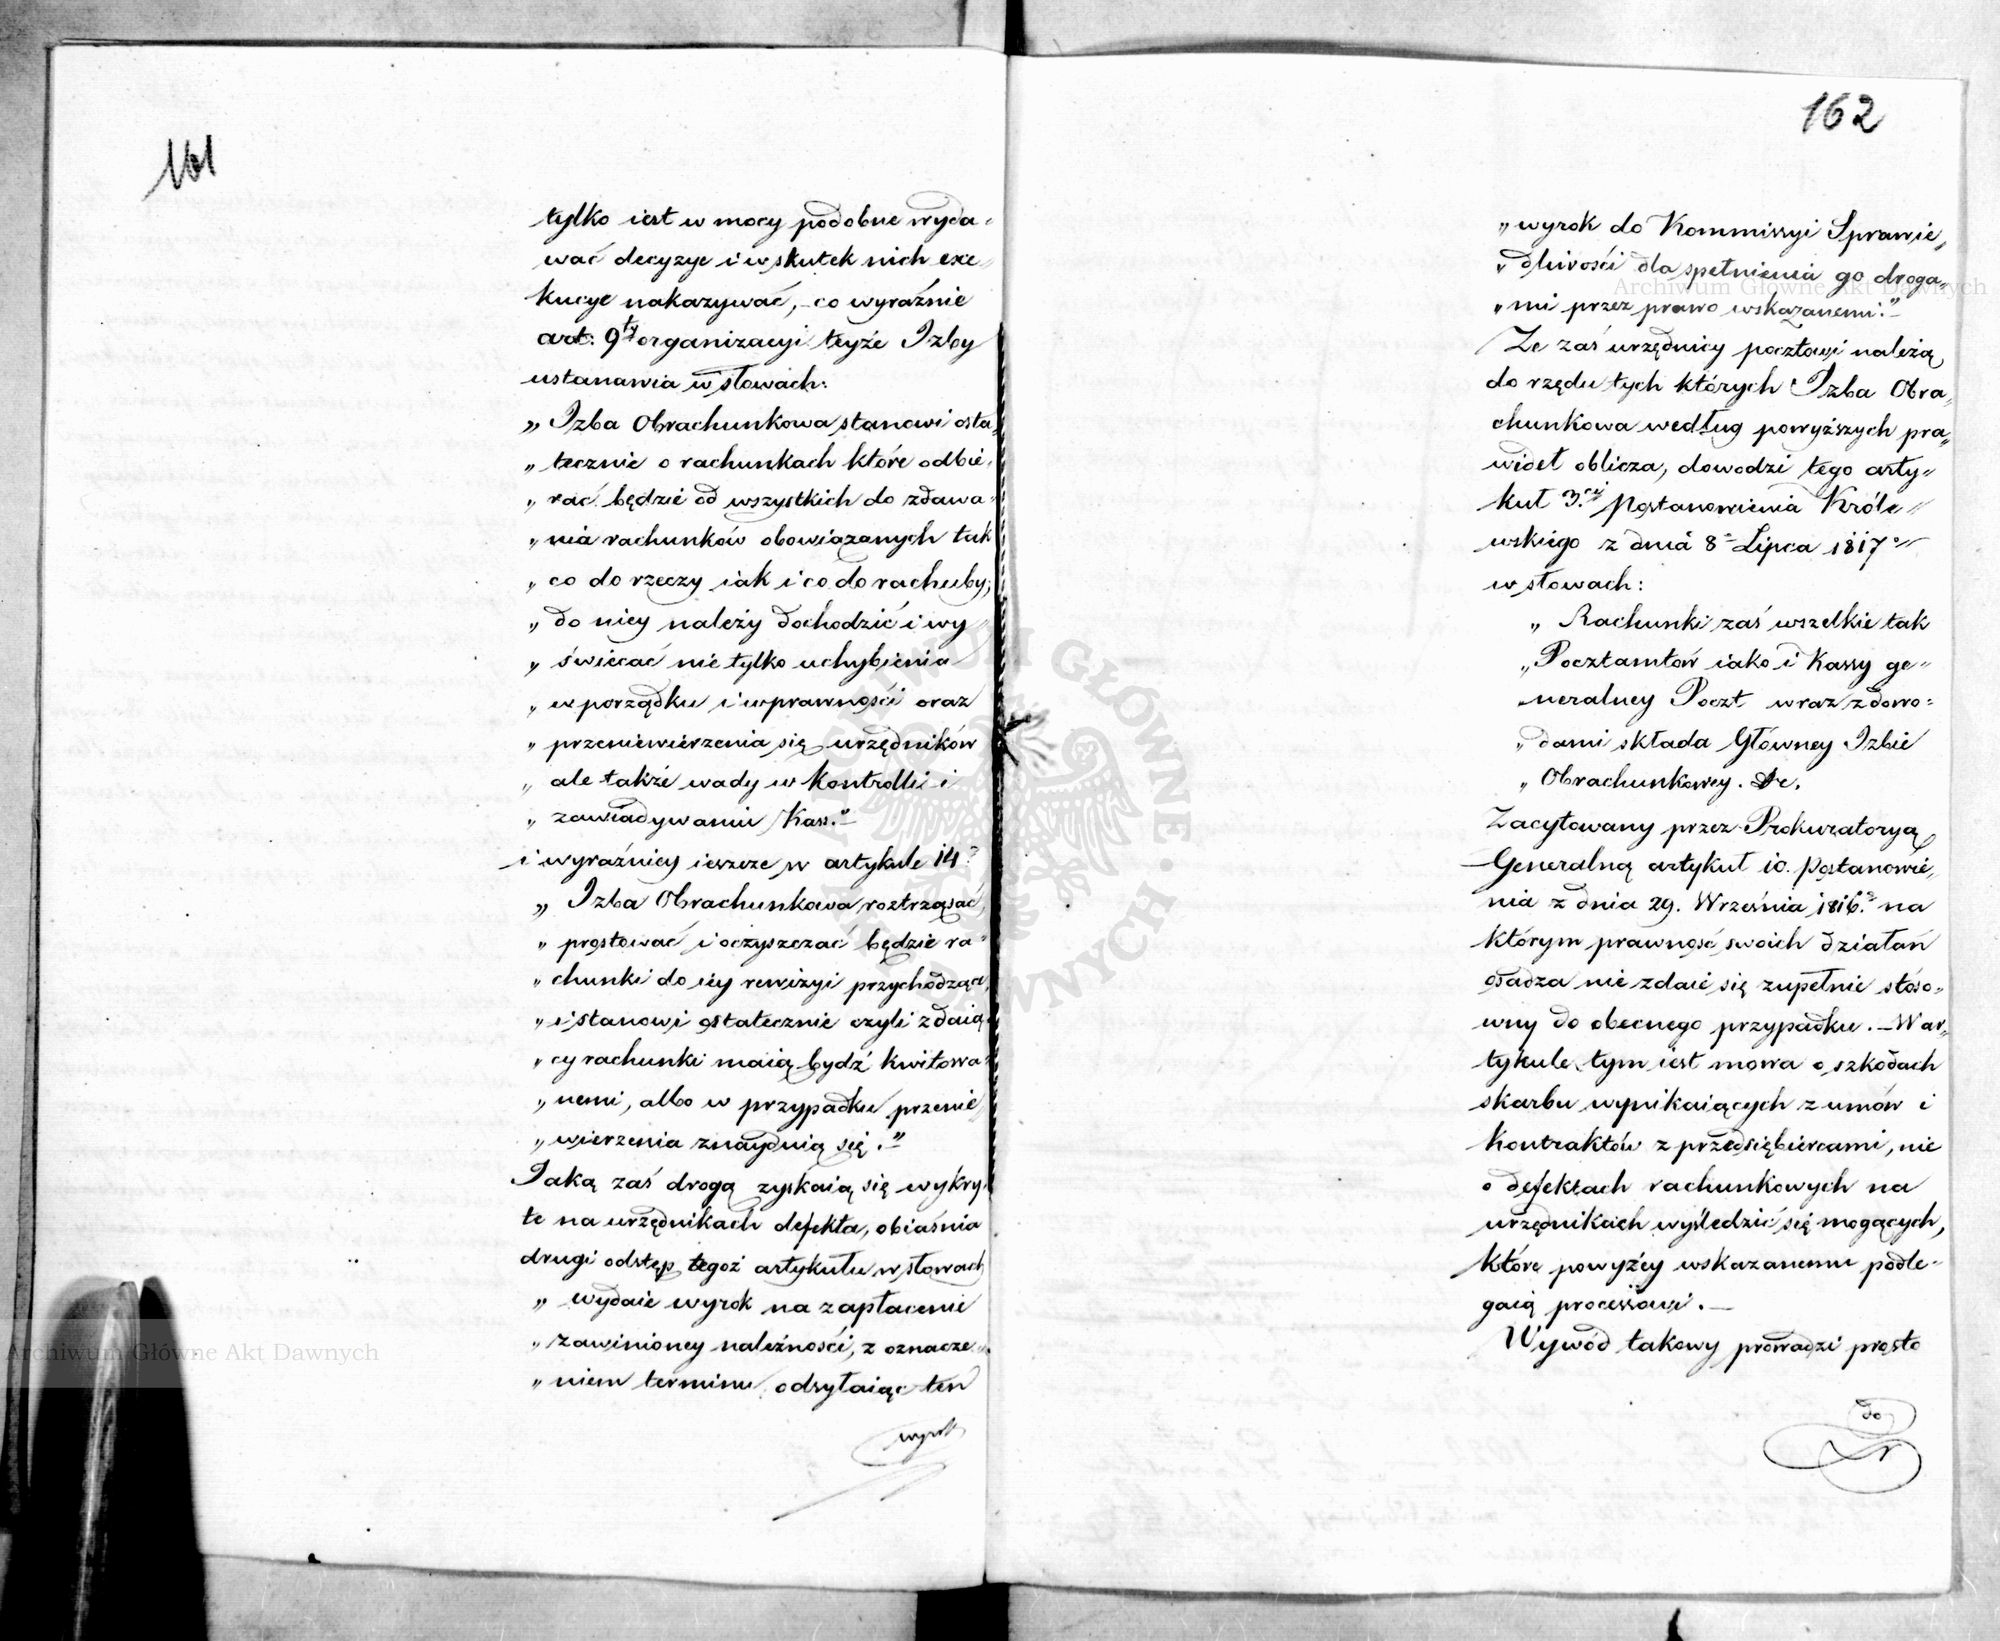 161
tylko iest w mocy podobne wyda„
wać decyzye i w skutek nich exe„
kucye nakazywać, co wyraźnie
art: 9ty organizacyi teyże Izby
ustanawia w słowach:
„ Izba Obrachunkowa stanowi osta„
„ tecznie o rachunkach które odbie„
„ rać będzie od wszystkich do zdawa„
„ nia rachunków obowiązanych tak
„ co do rzeczy iak i co do rachuby,
„ do niey należy dochodzić i wy„
„ świecać nie tylko uchybienia
„ w porządku i w prawności oraz
„ przeniewierzenia się urzędników
„ ale także wady w kontrolli i
„ zawiadywaniu Kass.”—
i wyraźniey ieszcze w artykule 14º
„ Izba Obrachunkowa roztrząsać,
„ prostować i oczyszczać będzie ra„
„ chunki do iey rewizyi przychodzące,
„ i stanowi ostatecznie czyli zdaią„
„ cy rachunki maią bydź kwitowa„
„ nemi, albo w przypadku przenie„
„ wierzenia znayduią się.”
Jaką zaś drogą zyskaią się wykry„
te na urzędnikach defekta, obiaśnia
drugi odstęp tegoż artykułu w słowach
„ wydaie wyrok na zapłacenie
„ zawinioney należności, z oznacze„
„ niem terminu odsyłaiąc ten
wyrok
162
„ wyrok do Kommissyi Sprawie„
„ dliwości dla spełnienia go droga„
„ mi przez prawo wskazanemi.”—
Że zaś urzędnicy pocztowi należą
do rzędu tych których Izba Obra„
chunkowa według powyższych pra„
wideł oblicza, dowodzi tego arty„
kuł 3ci Postanowienia Króle„
wskiego z dnia 8º Lipca 1817º
w słowach:
„ Rachunki zaś wszelkie tak
„ Pocztamtów iako i Kassy ge„
„ neralney Poczt wraz z dowo„
„ dami składa Główney Izbie
„ Obrachunkowey. &c.
Zacytowany przez Prokuratoryą
Generalną artykuł 10. Postanowie„
nia z dnia 29. Września 1816.º na
którym prawność swoich działań
osadza nie zdaie się zupełnie stóso„
wny do obecnego przypadku.— W ar„
tykule tym iest mowa o szkodach
skarbu wynikaiących z umów i
kontraktów z przedsiębiercami, nie
o defektach rachunkowych na
urzędnikach wyśledzić się mogących,
które powyżey wskazanemu podle„
gaią processowi.—
Wywód takowy prowadzi prosto
do
Archiwum Główne Akt Dawnych
Archiwum Główne Akt Dawnych
ARCHIWUM GŁÓWNE AKT DAWNYCH